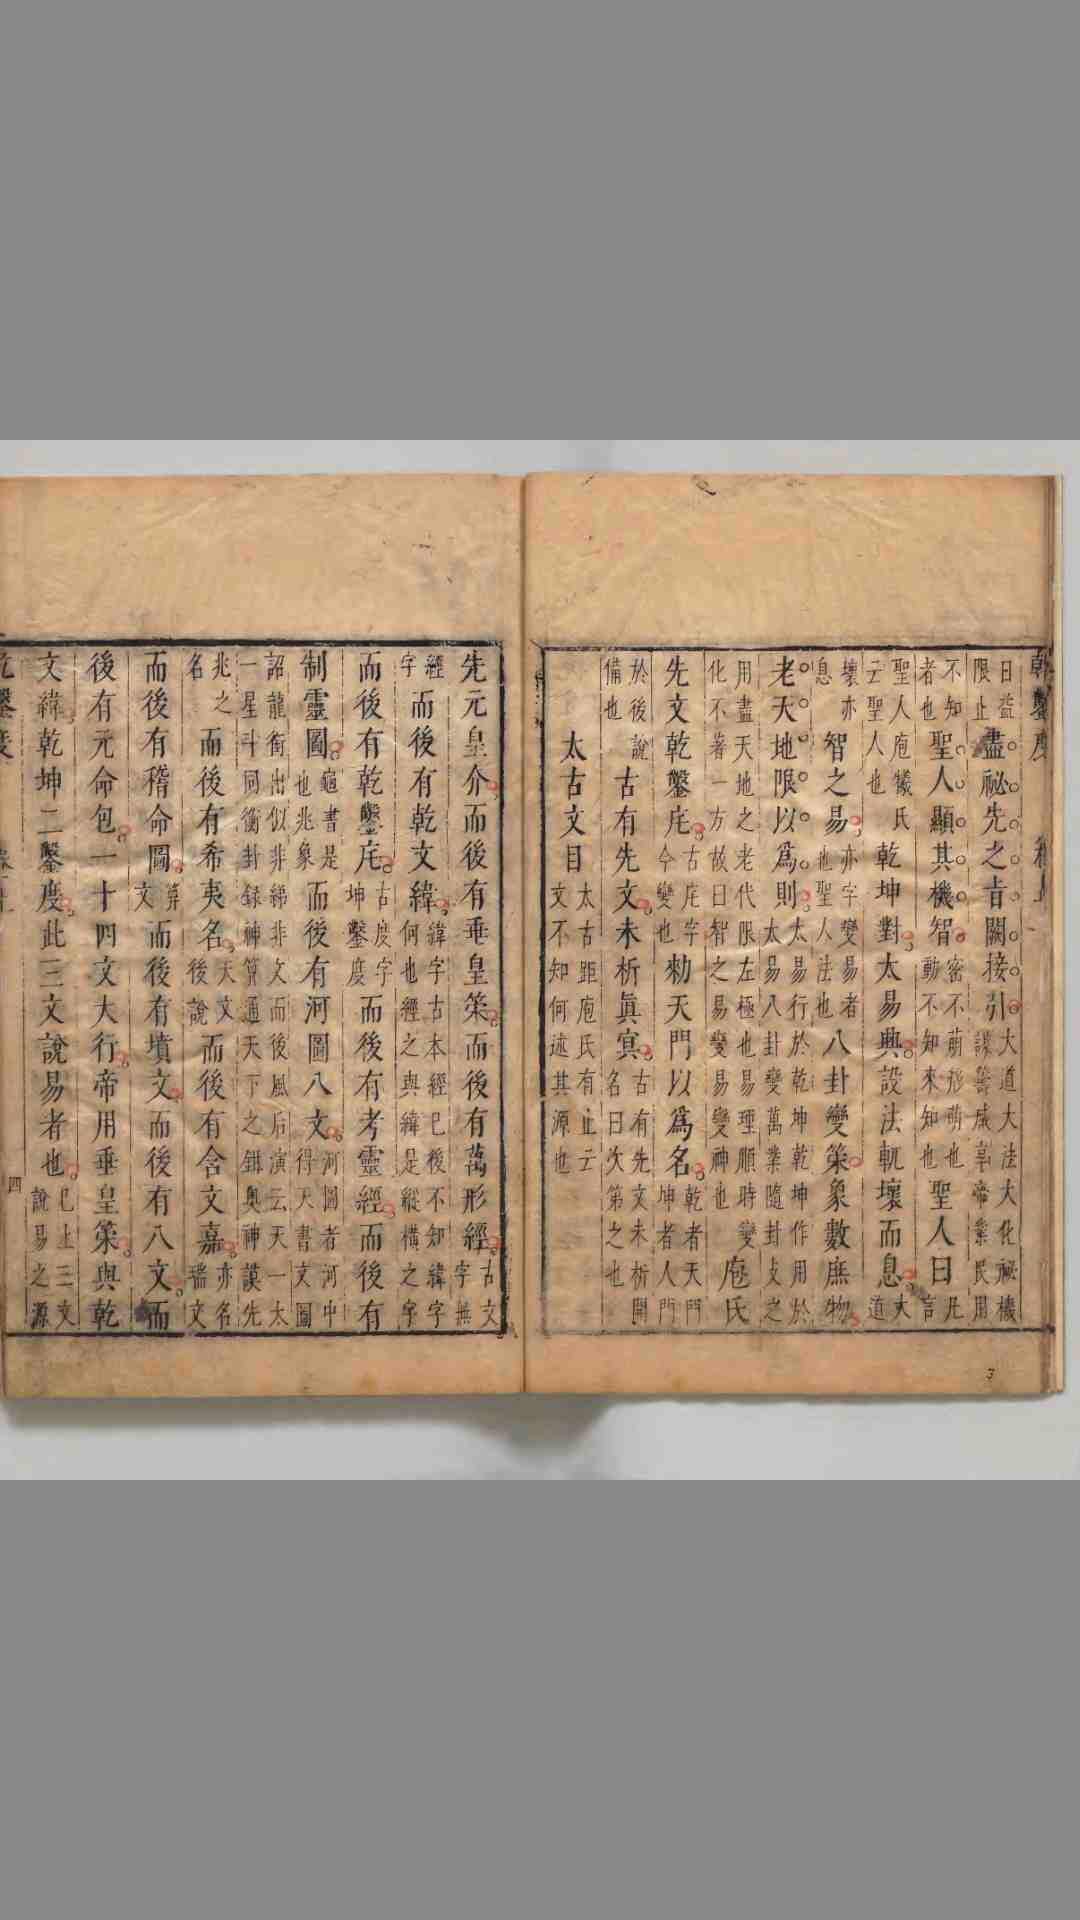 日益
限止
盡祕先之旨闢接引
大道大法大化祕機
謀籌成享帝業民用
不知
者也
聖人顯其機智
密不萌形萌也
動不知來知也
聖人曰
凡
言
聖人庖犧氏
云聖人也
乾坤對太易興設法軌壞而息
大
道
壞亦
息
智之易
亦字變易者
也聖人法也
八卦變策象數庶物
老天地限以爲則
太易行於乾坤乾坤作用於
太易八卦變萬業隨卦攴之
用盡天地之老代限左極也易理順時變
化不著一方故曰智之易變易變神也
庖氏
先文乾鑿庑
古庑字
今變也
勑天門以爲名
乾者天門
坤者人門
於後說
備也
古有先文未析眞㝠
古有先文未析開
名曰次第之也
太古文目
太古距庖氏有止云
文不知何述其源也
先元皇介而後有垂皇策而後有萬形經
古文
字無
經
字
而後有乾文緯
緯字古本經已後不知緯字
何也經之與緯是縱橫之字
而後有乾鑿庑
古度字
坤鑿度
而後有考靈經而後有
制靈圖
龜書是
也兆象
而後有河圖八文
河圖者河中
得天書文圖
詔龍銜出似非綈非文而後風后演云天一太
一星斗同衡卦録神算通天下之鎡奧神謨先
兆之
名
而後有希夷名
天文
後說
而後有含文嘉
亦名
瑞文
而後有稽命圖
算
文
而後有墳文而後有八文而
後有元命包一十四文大行帝用垂皇策與乾
文緯乾坤二鑿度此三文說易者也
已上三文
說易之源
四